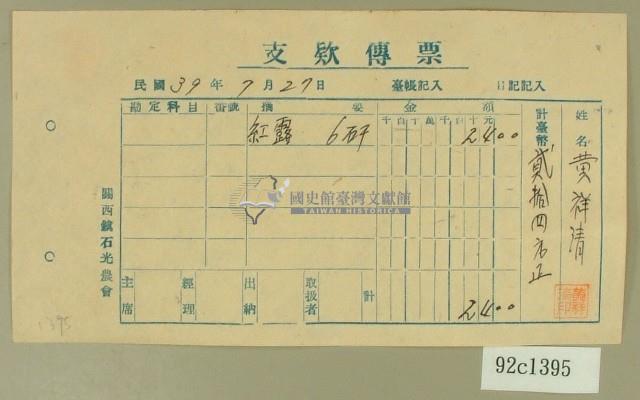 支欵傳票
民國 39 年 7 月 27 日 臺帳記入 日記記入
勘定科目 番號 摘要 金額
千百十萬千百十元
紅露 6矸 2400
國史館臺灣文獻館
TAIWAN HISTORICA
主席 經理 出納 取扱者 計 2400
計臺幣 貳拾四元正
姓名 黄祥清
關西鎮石光農會
1395
92c1395